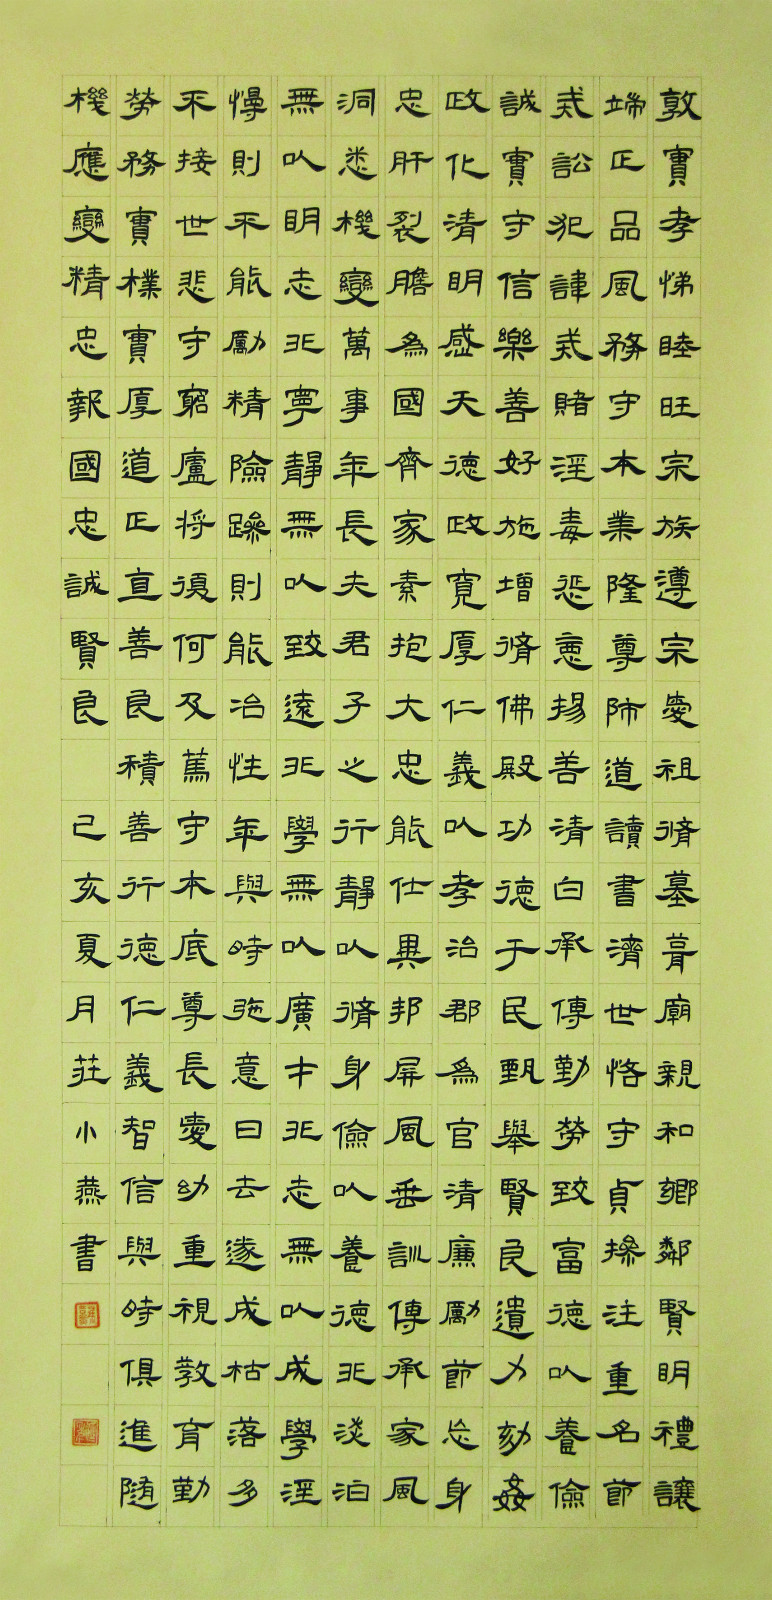 敦實孝悌睦旺宗族遵宗愛祖脩墓葺廟親和鄉鄰賢明禮讓
端正品風務守本業隆尊師道讀書濟世恪守貞操注重名節
戒訟犯諱戒賭淫毒惩惡揚善清白承傳勤勞致富德以養儉
誠實守信樂善好施增脩佛殿功德于民甄舉賢良遺力劾姦
政化清明感天德政寬厚仁義以孝治郡為官清廉勵節忘身
忠肝裂膽為國齊家素抱大忠能仕異邦屏風垂訓傳承家風
洞悉機變萬事年長夫君子之行靜以脩身儉以養德非淡泊
無以明志非寧靜無以致遠非學無以廣才非志無以成學淫
慢則不能勵精險躁則能冶性年與時弛意日去遂成枯落多
不接世悲守窮廬將復何及篤守本底尊長愛幼重視教育勤
勞務實樸實厚道正直善良積善行德仁義智信與時俱進隨
機應變精忠報國忠誠賢良 己亥夏月莊小燕書